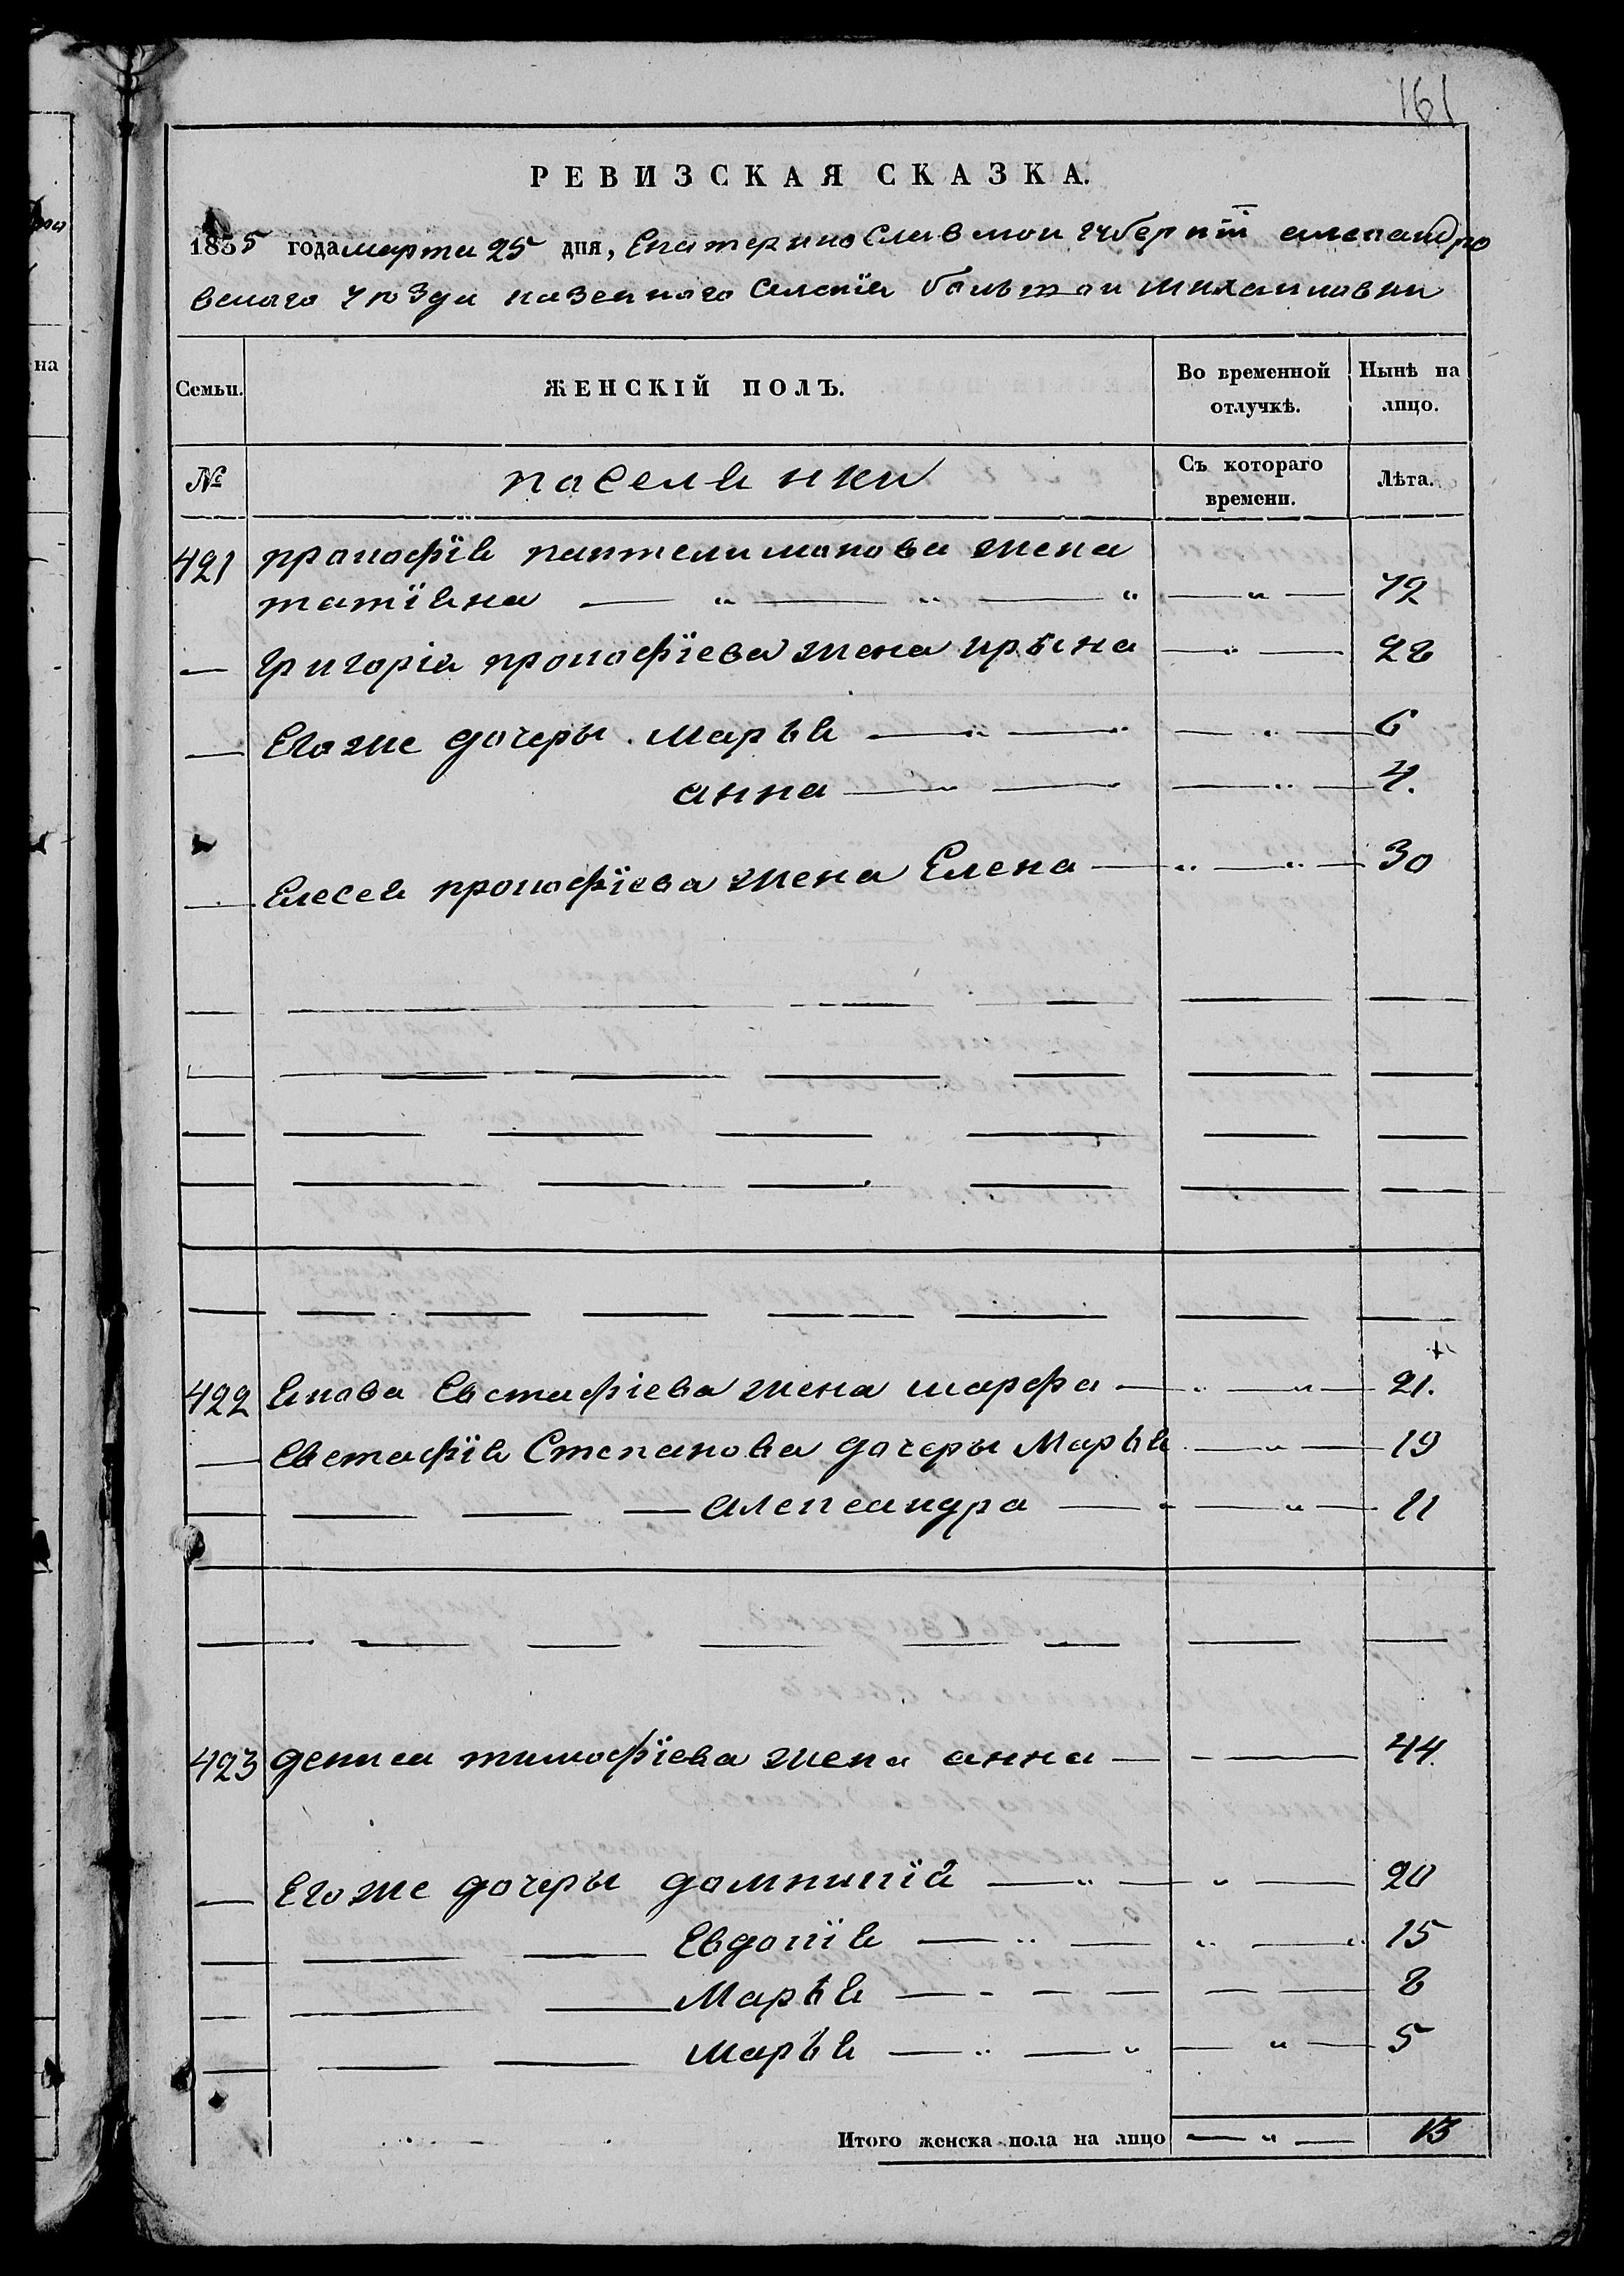 161
РЕВИЗСКАЯ СКАЗКА.
1835 года марта 25 дня, Екатеринославской губерніи александро
вскаго уѣзда казеннаго Селенія большой михаиловки
на
Семьи. ЖЕНСКІЙ ПОЛЪ. Во временной отлучкѣ. Нынѣ на лицо.
№ поселянки Съ котораго времени. Лѣта.
421 прокофія пантелимонова жена
татіяна — " — " — " — " — 72
— Григорія прокофіева жена ирына — " — 28
— Его же дочеры Марья — " — " — " — 6
анна — " — " — " — 4.
— Елесея прокофіева жена Елена — " — " — 30
422 Якова Евстафіева жена марфа — " — " — 21.
— Евстафія Степанова дочеры Марья — " — 19
— — — — Александра — " — " — 11
423 дениса тимофіева жена анна — - — 44.
— Его же дочеры домникія — " — " — 20
— — — Евдокія — " — " — " 15
— — — Марья — - — - — — — 8
— — — Марья — " — " — " — 5
Итого женска пола на лицо — " — 13